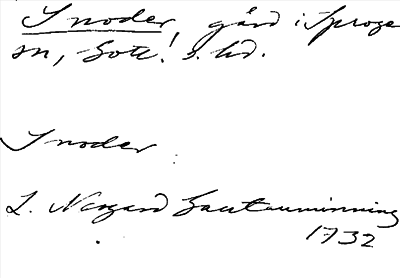 Snoder, gård i Sproge
sn, Gotl. s. hd.
Snoder
L. Nergård Gautauminning
1732